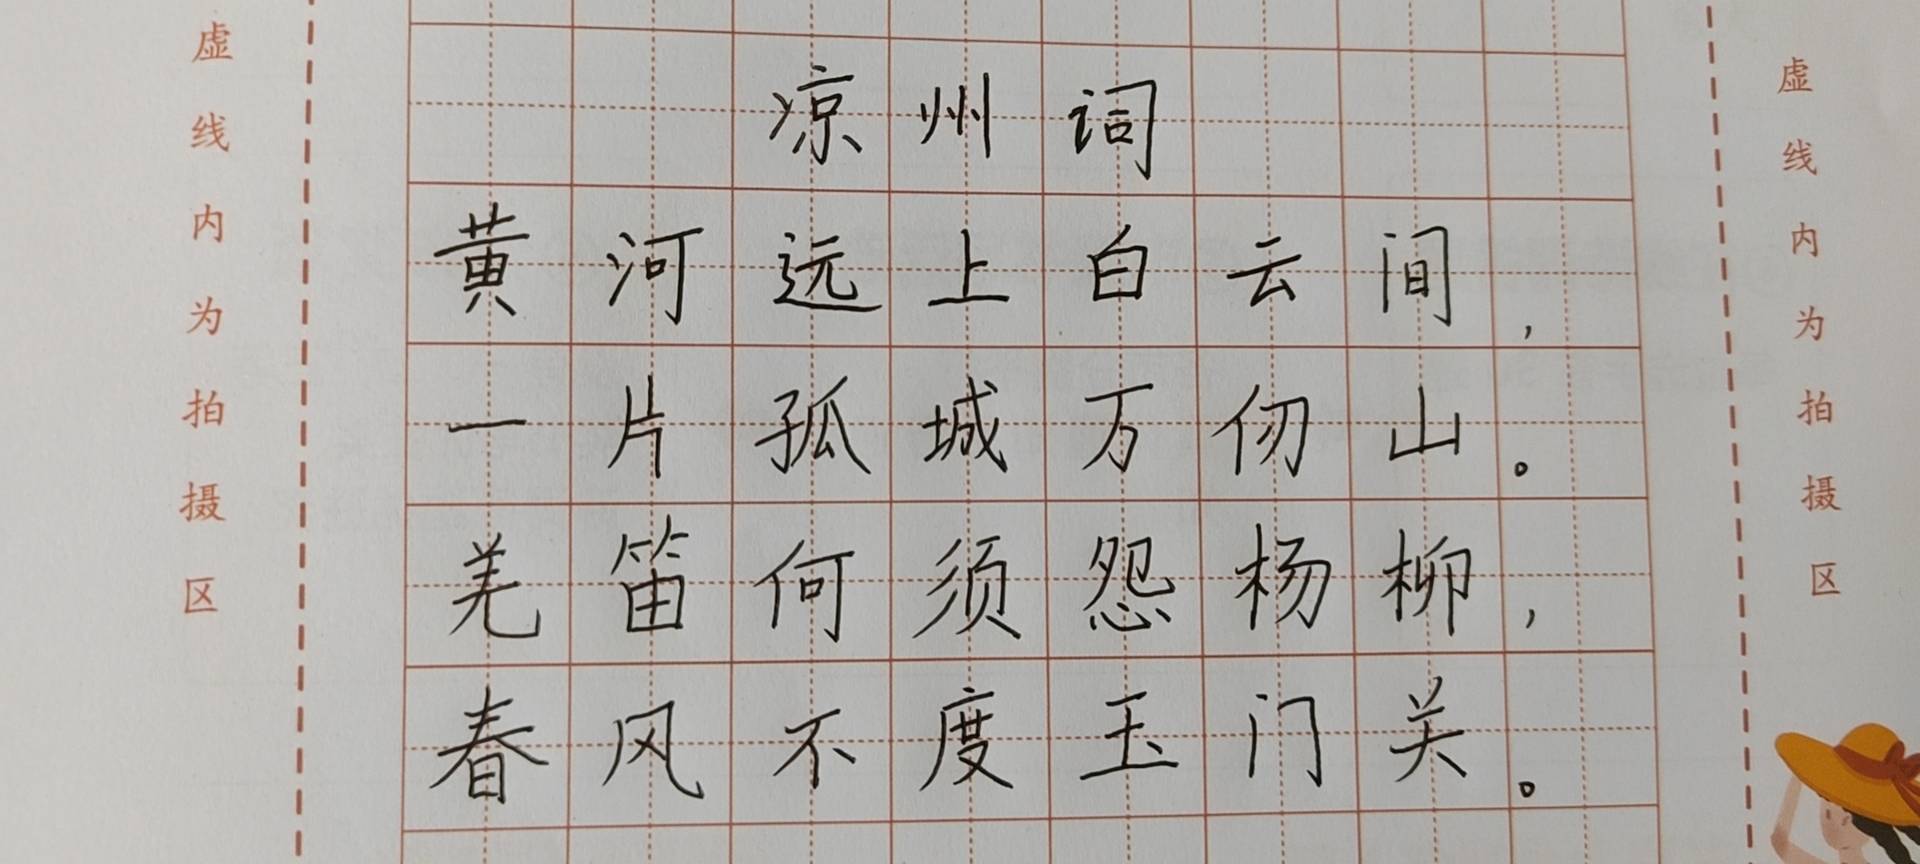 虚线内为拍摄区
凉州词
黄河远上白云间，
一片孤城万仞山。
羌笛何须怨杨柳，
春风不度玉门关。
虚线内为拍摄区